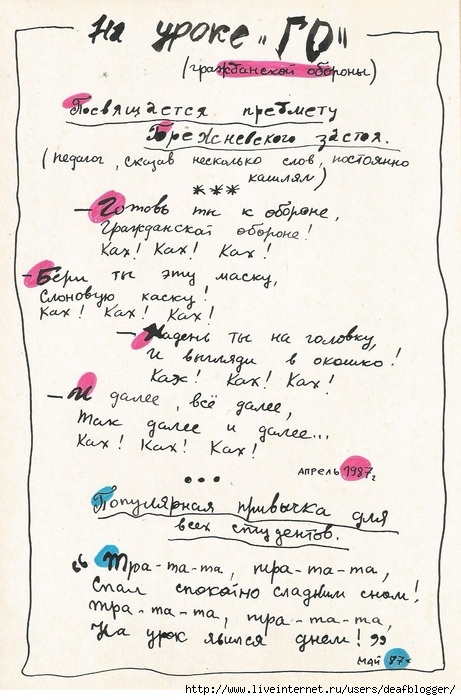 На уроке „ГО"
(гражданской обороны)
Посвящается предмету
Брежневского застоя.
(педагог, сказав несколько слов, постоянно
кашлял)
***
— Готовь ты к обороне,
Гражданской обороне!
Ках! Ках! Ках!
— Бери ты эту маску,
Слоновую каску!
Ках! Ках! Ках!
— Надень ты на головку,
И выгляди в окошко!
Каж! Ках! Ках!
— И далее, всё далее,
Так далее и далее...
Ках! Ках! Ках!
АПРЕЛЬ 1987г
...
Популярная привычка для
всех студентов.
„Тра-та-та, тра-та-та,
Спал спокойно сладким сном!
Тра-та-та, тра-та-та,
На урок явился днем!"
МАЙ 87г
http://www.liveinternet.ru/users/deafblogger/